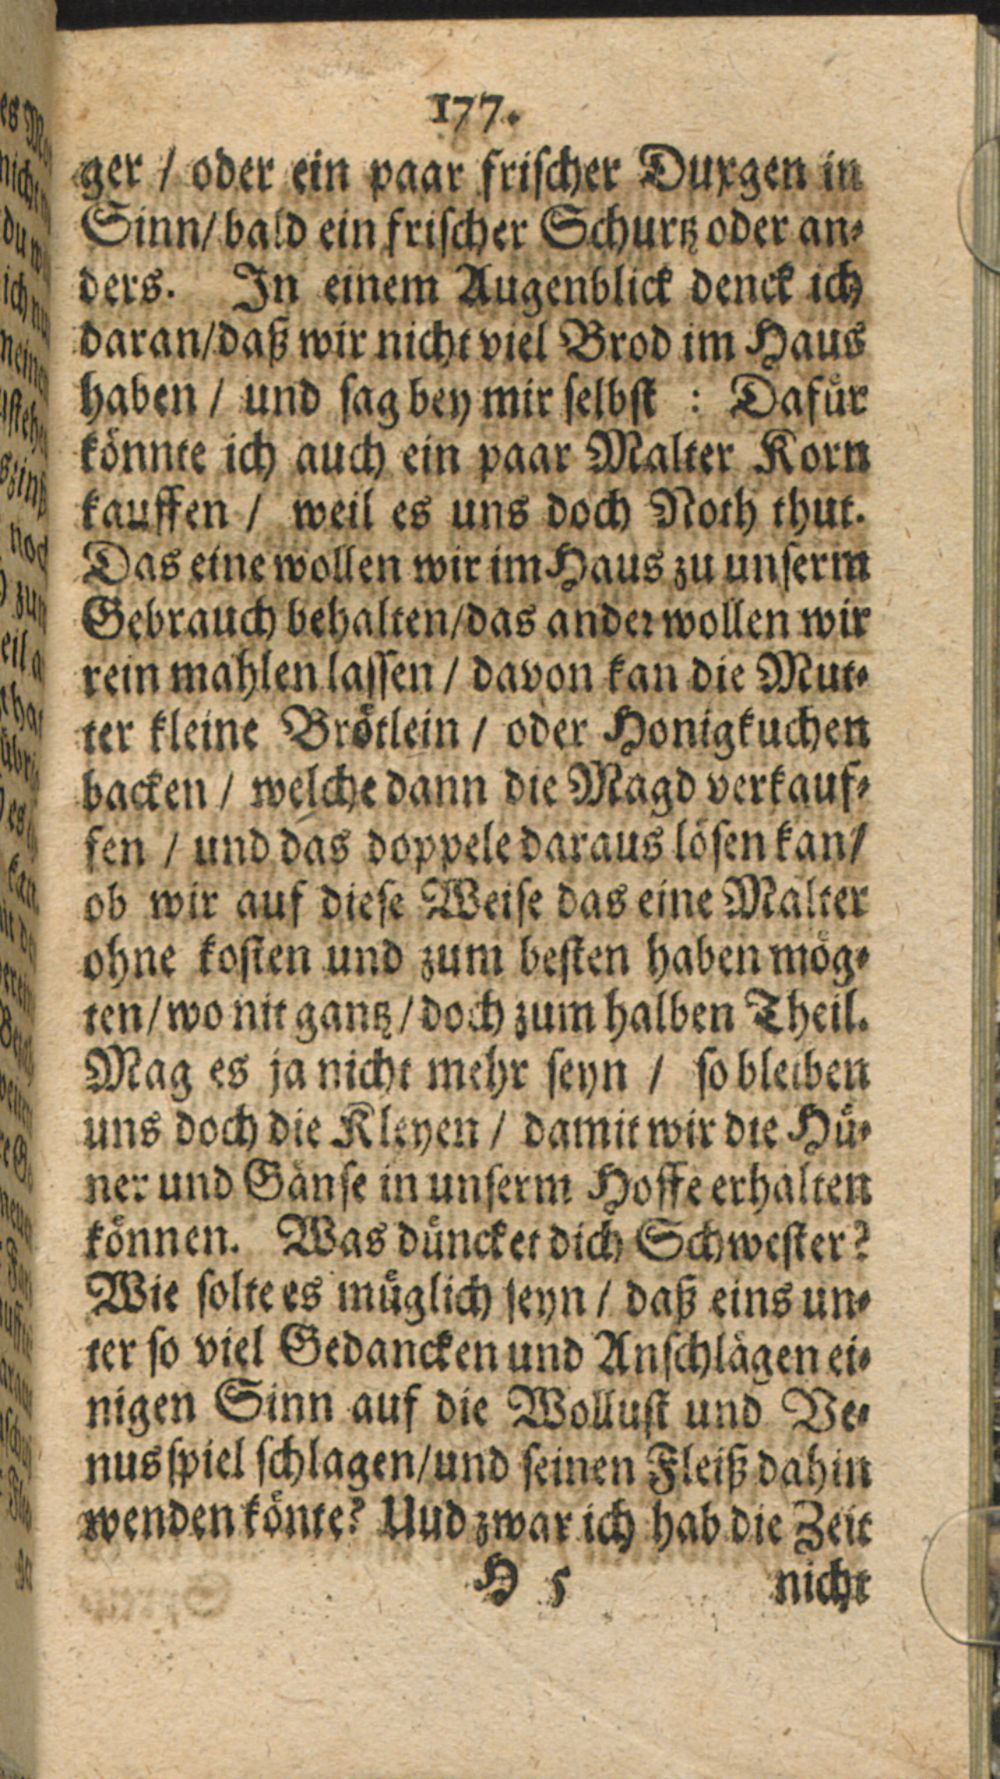 177.
ger / oder ein paar frischer Duxgen in
Sinn/ bald ein frischer Schurtz oder an-
ders. In einem Augenblick denck ich
daran/daß wir nicht viel Brod im Haus
haben / und sag bey mir selbst : Dafür
könnte ich auch ein paar Malter Korn
kauffen / weil es uns doch Noth thut.
Das eine wollen wir im Haus zu unserm
Gebrauch behalten/das ander wollen wir
rein mahlen lassen / davon kan die Mut-
ter kleine Brötlein / oder Honigkuchen
backen / welche dann die Magd verkauf-
fen / und das doppele daraus lösen kan/
ob wir auf diese Weise das eine Malter
ohne kosten und zum besten haben mög-
ten/wo nit gantz/doch zum halben Theil.
Mag es ja nicht mehr seyn / so bleiben
uns doch die Kleyen / damit wir die Hü-
ner und Gänse in unserm Hoffe erhalten
können. Was düncket dich Schwester?
Wie solte es müglich seyn / daß eins un-
ter so viel Gedancken und Anschlägen ei-
nigen Sinn auf die Wollust und Ve-
nusspiel schlagen/und seinen Fleiß dahin
wenden könte? Uud zwar ich hab die Zeit
H 5 nicht